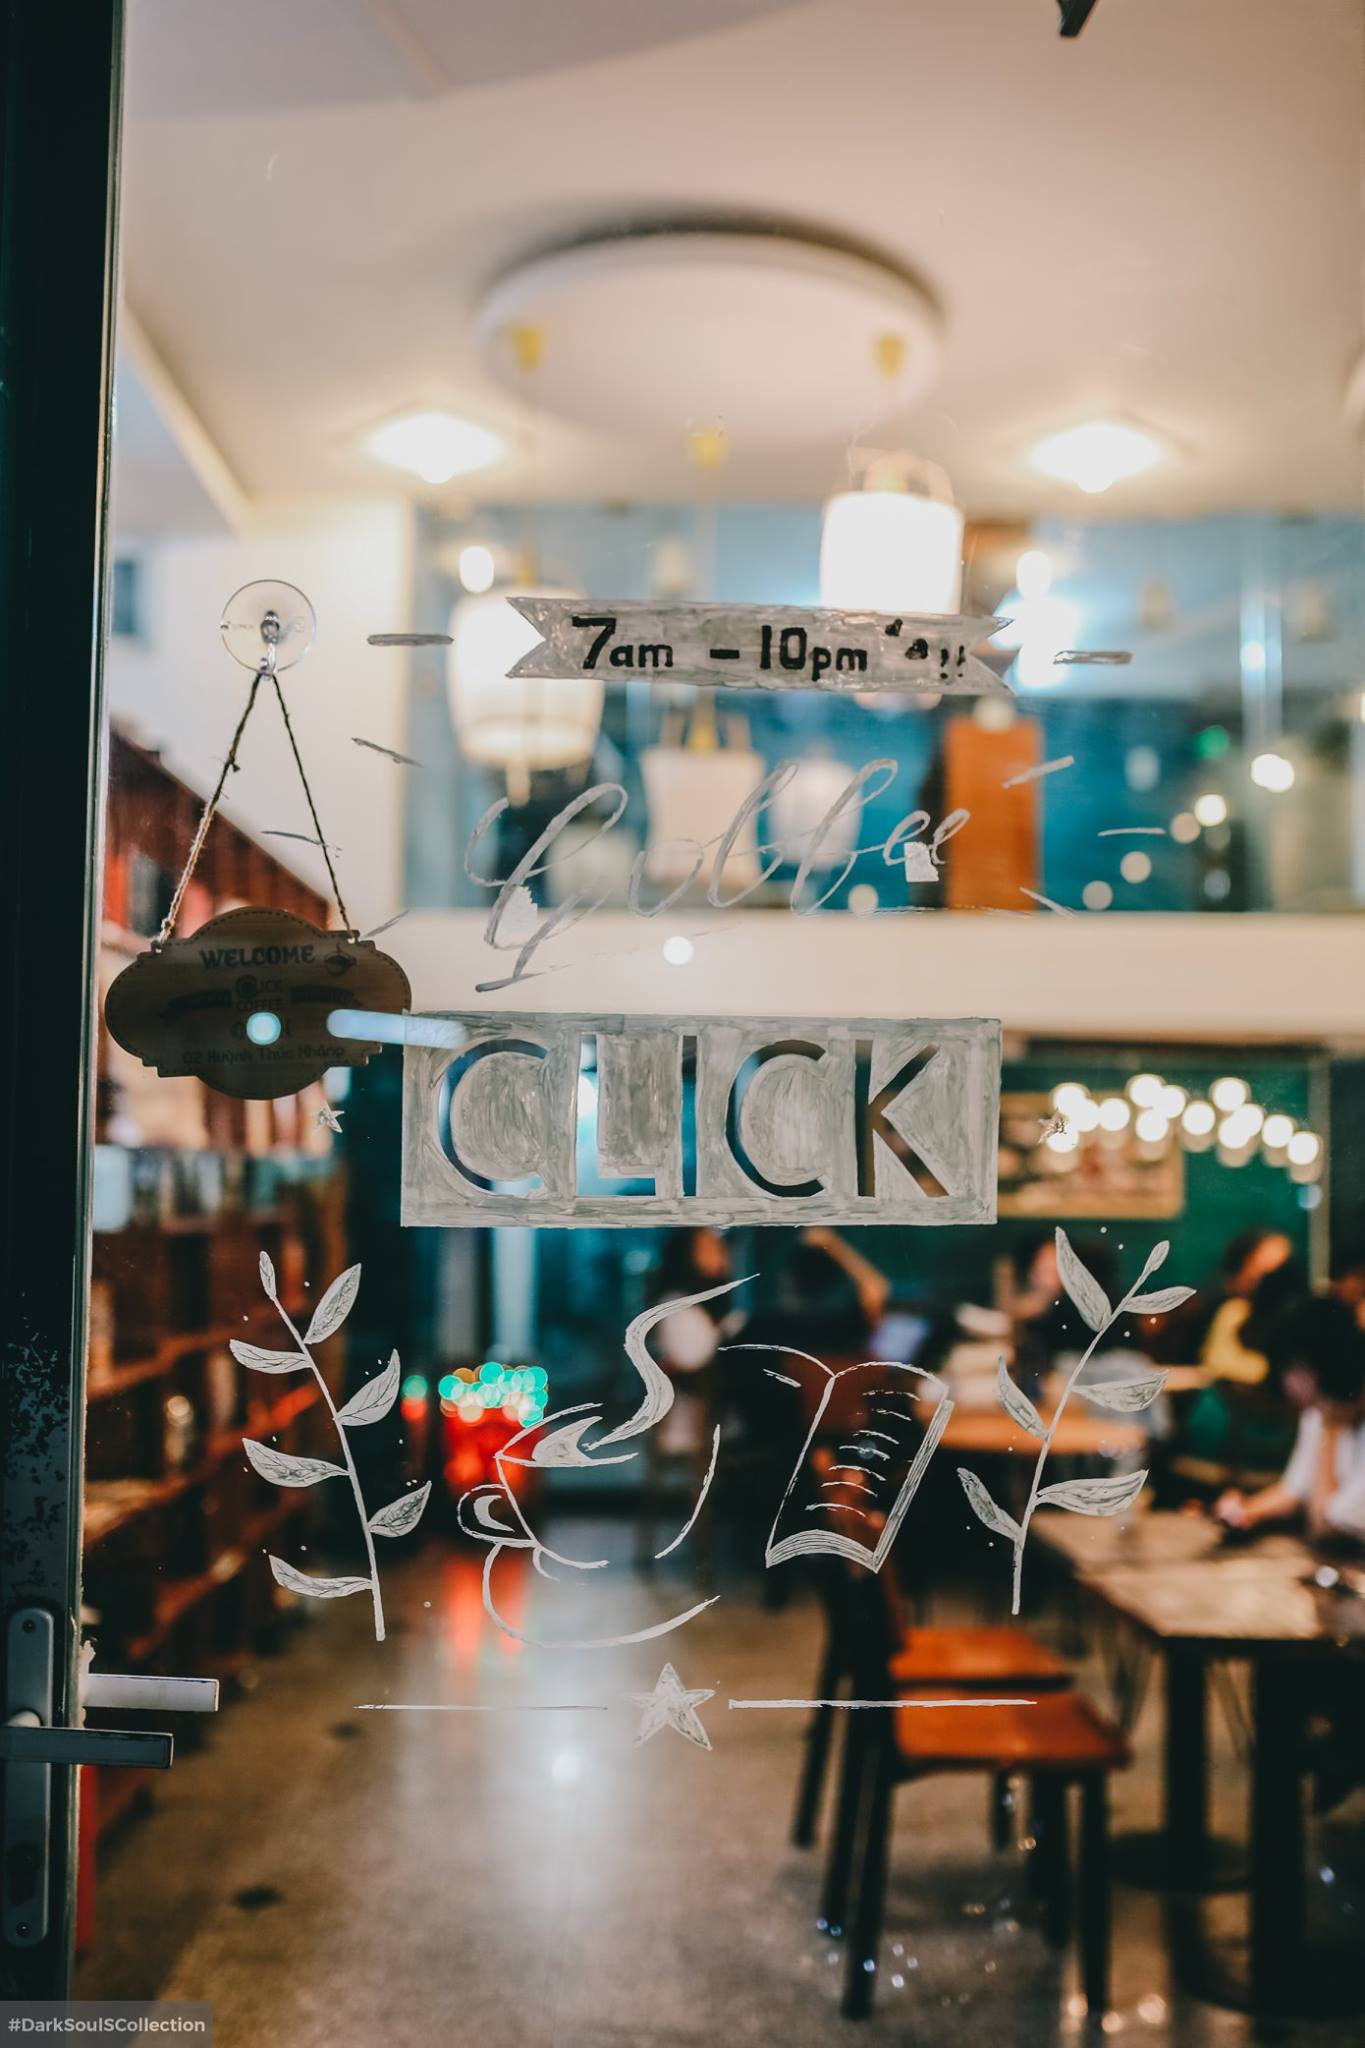 7am - 10pm !!
Coffee
WELCOME
CLICK
COFFEE
02 Huỳnh Thúc Kháng
CLICK
#DarkSoulSCollection